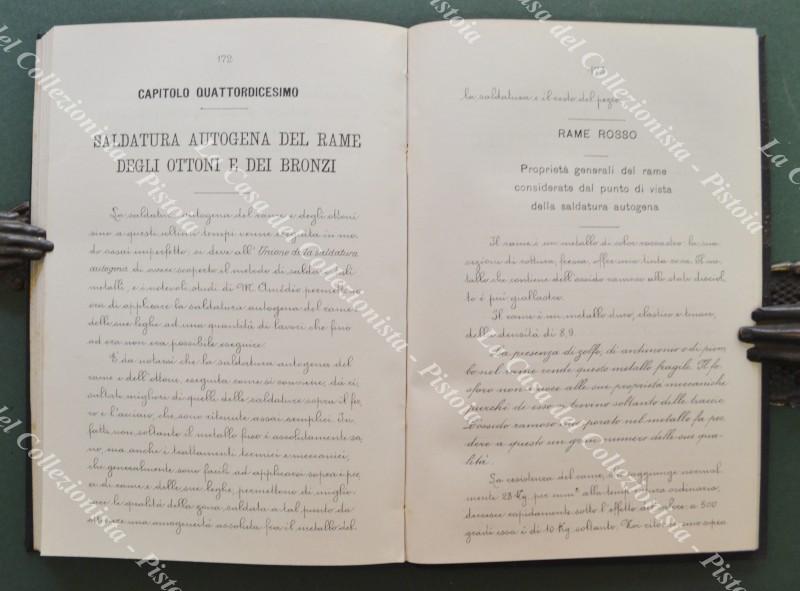 172
CAPITOLO QUATTORDICESIMO
SALDATURA AUTOGENA DEL RAME
DEGLI OTTONI E DEI BRONZI
La saldatura autogena del rame e degli ottoni
sino a questi ultimi tempi venne eseguita in mo-
do assai imperfetto; si deve all'Unione de la saldatura
autogena di avere scoperto il metodo di saldare tali
metalli, e i notevoli studi di M. Amédéo permettono
ora di applicare la saldatura autogena del rame e
delle sue leghe ad una quantità di lavori che fino
ad ora non era possibile eseguire.
È da notarsi che la saldatura autogena del
rame e dell'ottone, eseguita come si conviene, dà ri-
sultati migliori di quelli delle saldature sopra il fer-
ro e l'acciaio, che sono ritenute assai semplici. In-
fatti non soltanto il metallo fuso è assolutamente sa-
no, ma anche i trattamenti termici e meccanici,
che generalmente sono facili ad applicarsi sopra i pez-
zi di rame e delle sue leghe, permettono di miglio-
rare le qualità della zona saldata a tal punto da
ottenere una omogeneità assoluta fra il metallo del-
173
la saldatura e il resto del pezzo.
RAME ROSSO
Proprietà generali del rame
considerate dal punto di vista
della saldatura autogena
Il rame è un metallo di color rossastro: la su-
sezione di rottura, fresca, offre una tinta rosa. Il me-
tallo che contiene dell'ossido ramoso allo stato disciol-
to è più giallastro.
Il rame è un metallo duro, elastico e tenace,
della densità di 8,9.
La presenza di zolfo, di antimonio o di piom-
bo nel rame rende questo metallo fragile. Il fo-
sforo non nuoce alle sue proprietà meccaniche
purchè di esso si trovino soltanto delle traccie.
L'ossido ramoso incorporato nel metallo fa per-
dere a questo un gran numero delle sue qua-
lità.
La resistenza del rame, che raggiunge normal-
mente 23 Kg. per mm² alla temperatura ordinaria,
decresce rapidamente sotto l'effetto del calore: a 500
gradi essa è di 10 Kg. soltanto. Noi citiamo, uno sopra
La Casa del Collezionista - Pistoia